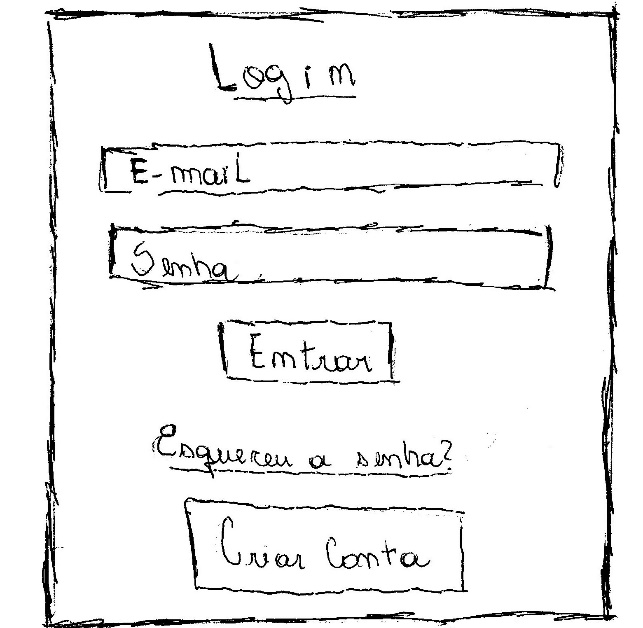 Login
E-mail
Senha
Entrar
Esqueceu a senha?
Criar Conta